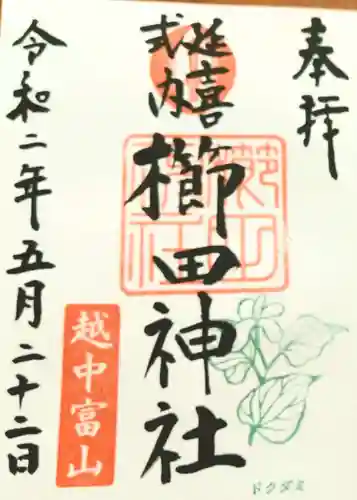 奉拝
延喜
式内
櫛田神社
令和二年五月二十二日
越中富山
ドクダミ